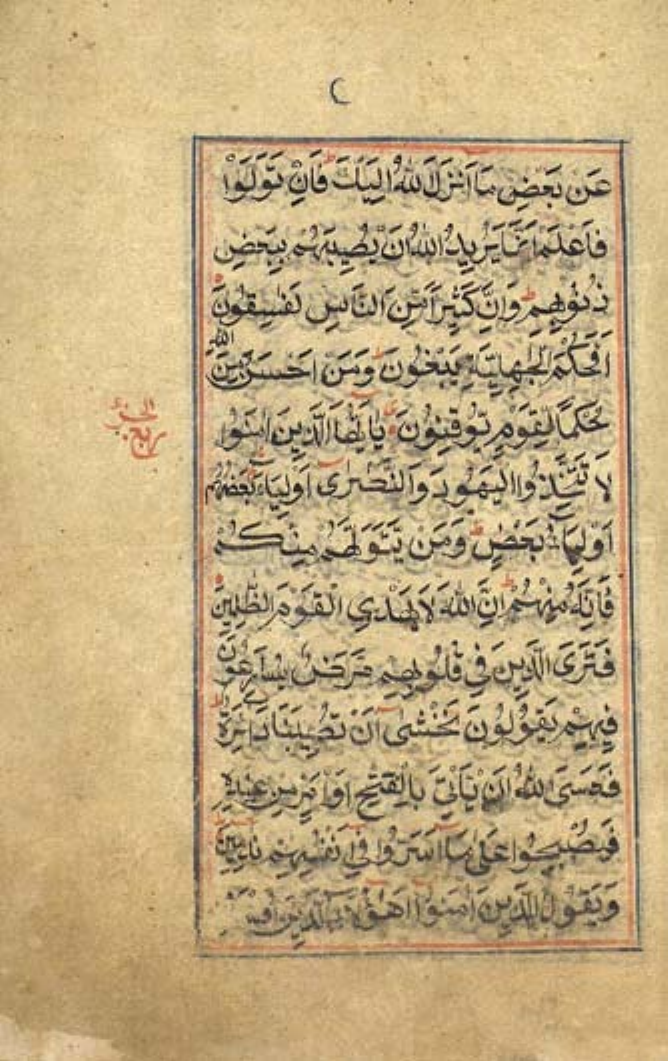 عَنْ بَعْضِ مَا اَنْزَلَ اللّٰهُ اِلَيْكَ ؕ فَاِنْ تَوَلَّوْا
فَاعْلَمْ اَنَّمَا يُرِيْدُ اللّٰهُ اَنْ يُّصِيْبَهُمْ بِبَعْضِ
ذُنُوْبِهِمْ ؕ وَاِنَّ كَثِيْرًا مِّنَ النَّاسِ لَفٰسِقُوْنَ
اَفَحُكْمَ الْجَاهِلِيَّةِ يَبْغُوْنَ ؕ وَمَنْ اَحْسَنُ مِنَ اللّٰهِ
حُكْمًا لِّقَوْمٍ يُّوْقِنُوْنَ يٰۤاَيُّهَا الَّذِيْنَ اٰمَنُوْا
لَا تَتَّخِذُوا الْيَهُوْدَ وَالنَّصٰرٰۤى اَوْلِيَآءَ بَعْضُهُمْ
اَوْلِيَآءُ بَعْضٍ ؕ وَمَنْ يَّتَوَلَّهُمْ مِّنْكُمْ
فَاِنَّهٗ مِنْهُمْ ؕ اِنَّ اللّٰهَ لَا يَهْدِي الْقَوْمَ الظّٰلِمِيْنَ
فَتَرَى الَّذِيْنَ فِيْ قُلُوْبِهِمْ مَّرَضٌ يُّسَارِعُوْنَ
فِيْهِمْ يَقُوْلُوْنَ نَخْشٰۤى اَنْ تُصِيْبَنَا دَآئِرَةٌ ؕ
فَعَسَى اللّٰهُ اَنْ يَّاْتِيَ بِالْفَتْحِ اَوْ اَمْرٍ مِّنْ عِنْدِهٖ
فَيُصْبِحُوْا عَلٰى مَاۤ اَسَرُّوْا فِيْۤ اَنْفُسِهِمْ نٰدِمِيْنَ
وَيَقُوْلُ الَّذِيْنَ اٰمَنُوْۤا اَهٰۤؤُلَآءِ الَّذِيْنَ